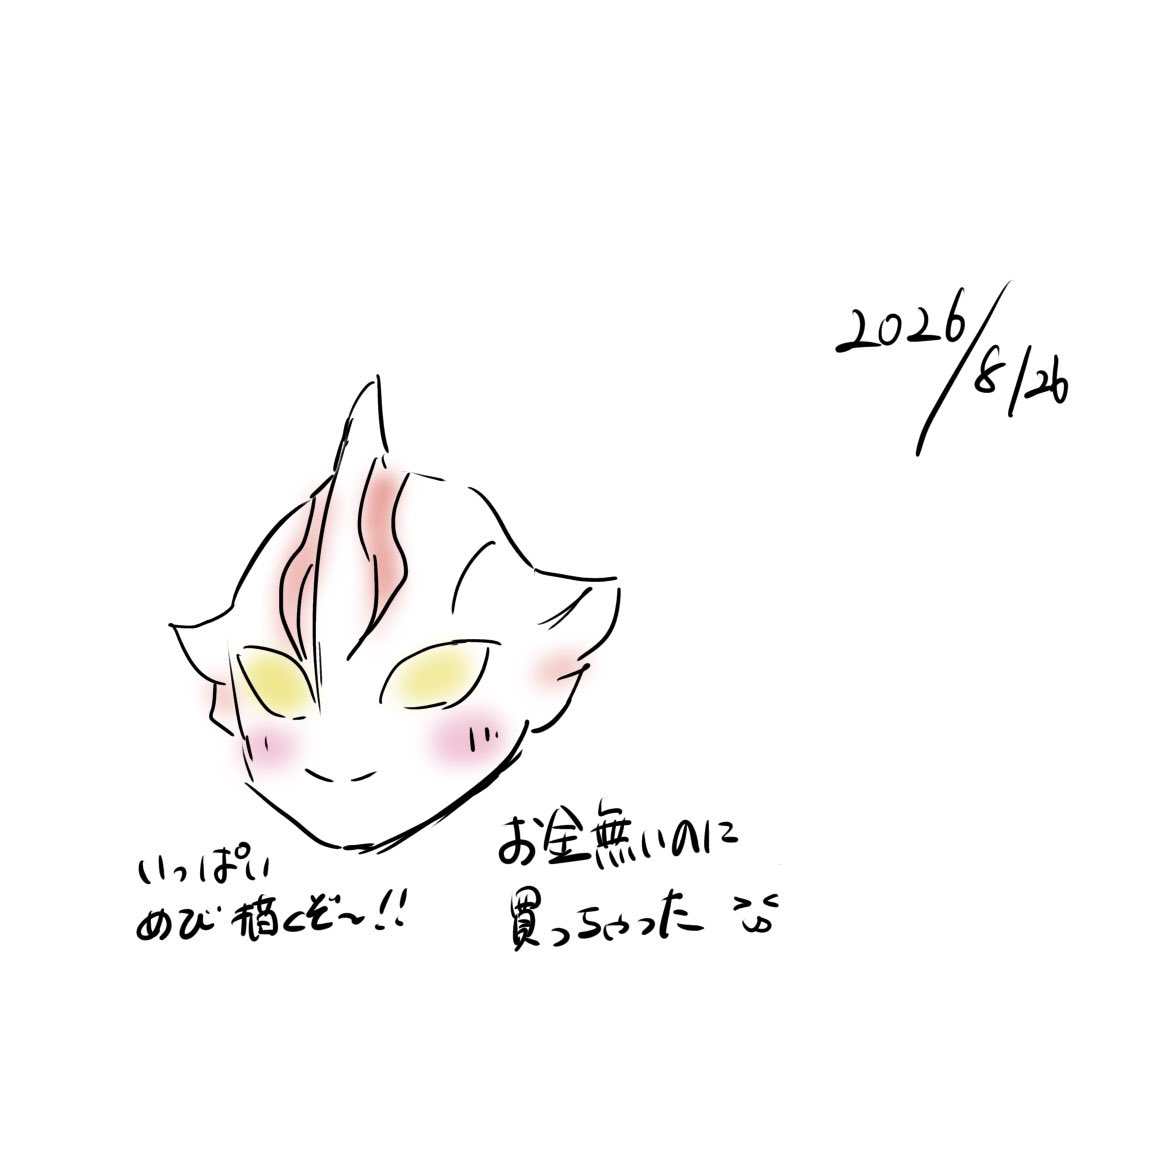 2026/8/26
いっぱい
めび描くぞ〜!!
お金無いのに
買っちゃった